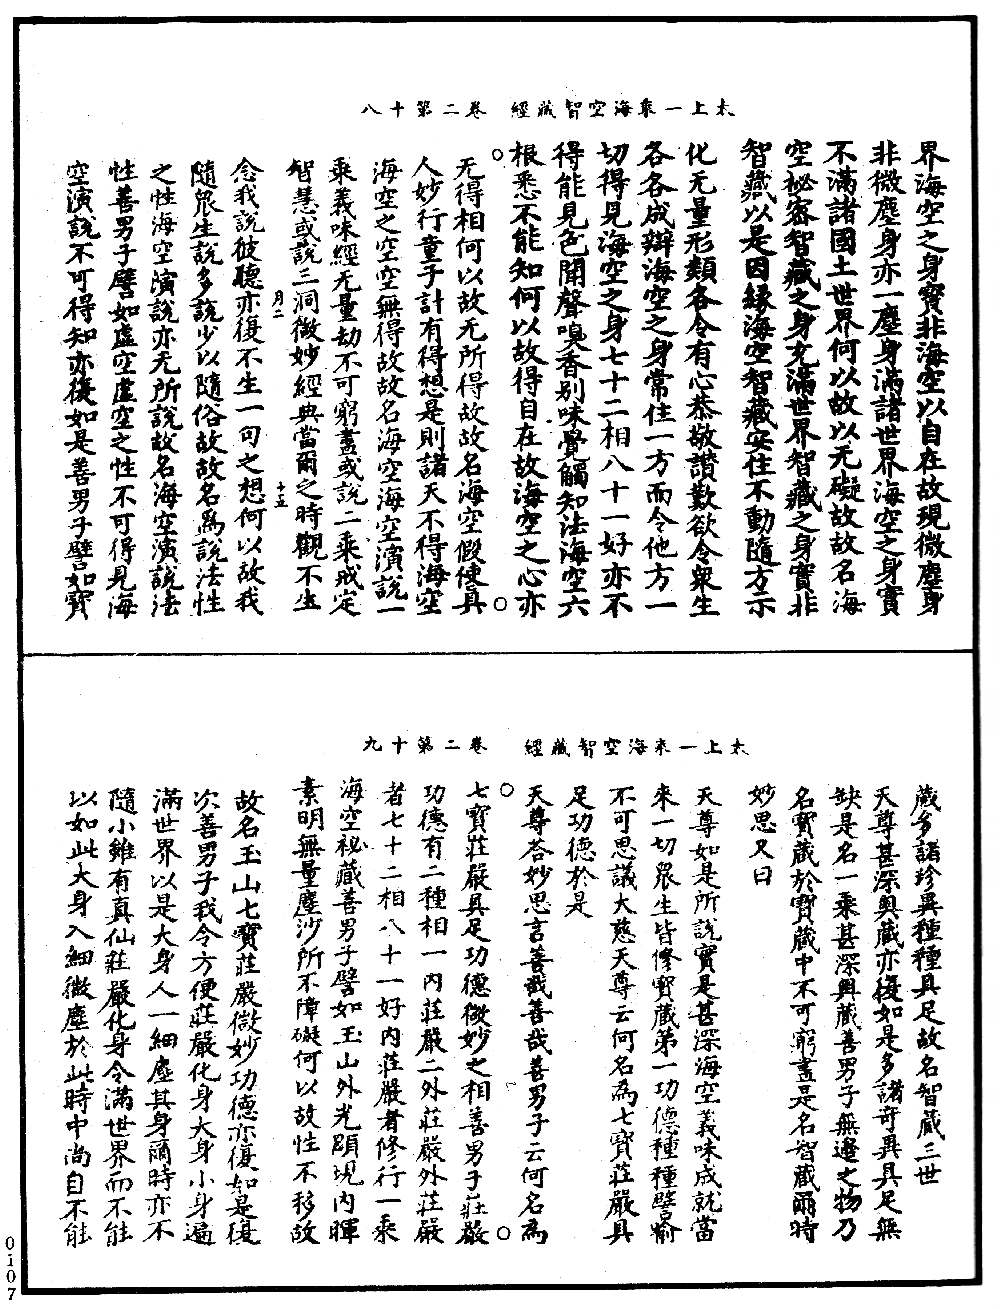 太上一乘海空智藏經　卷二第十八
界海空之身實非海空以自在故現微塵身
非微塵身亦一塵身滿諸世界海空之身實
不滿諸國土世界何以故以无礙故故名海
空祕密智藏之身充滿世界智藏之身實非
智藏以是因緣海空智藏安住不動隨方示
化无量形類各令有心恭敬讚歎欲令衆生
各各成辦海空之身常住一方而令他方一
切得見海空之身七十二相八十一好亦不
得能見色聞聲嗅香別味覺觸知法海空六
根悉不能知何以故得自在故海空之心亦
无得相何以故无所得故故名海空假使具
人妙行童子計有得想是則諸天不得海空
海空之空空無得故故名海空海空演說一
乘義味經无量劫不可窮盡或說二乘戒定
智慧或說三洞微妙經典當爾之時觀不生
月二　十五
念我說彼聽亦復不生一句之想何以故我
隨衆生說多說少以隨俗故故名爲說法性
之性海空演說亦无所說故名海空演說法
性善男子譬如虛空虛空之性不可得見海
空演說不可得知亦復如是善男子譬如寶
太上一乘海空智藏經　卷二第十九
藏多諸珍異種種具足故名智藏三世
天尊甚深奧藏亦復如是多諸奇異具足無
缺是名一乘甚深奧藏善男子無邊之物乃
名寶藏於寶藏中不可窮盡是名智藏爾時
妙思又曰
天尊如是所說實是甚深海空義味成就當
來一切衆生皆修寶藏第一功德種種譬喻
不可思議大慈天尊云何名為七寶莊嚴具
足功德於是
天尊答妙思言善哉善哉善男子云何名為
七寶莊嚴具足功德微妙之相善男子莊嚴
功德有二種相一內莊嚴二外莊嚴外莊嚴
者七十二相八十一好內莊嚴者修行一乘
海空祕藏善男子譬如玉山外光顯現內暉
素明無量塵沙所不障礙何以故性不移故
故名玉山七寶莊嚴微妙功德亦復如是復
次善男子我今方便莊嚴化身大身小身遍
滿世界以是大身入一細塵其身爾時亦不
隨小雖有真仙莊嚴化身令滿世界而不能
以如此大身入細微塵於此時中尚自不能
0107